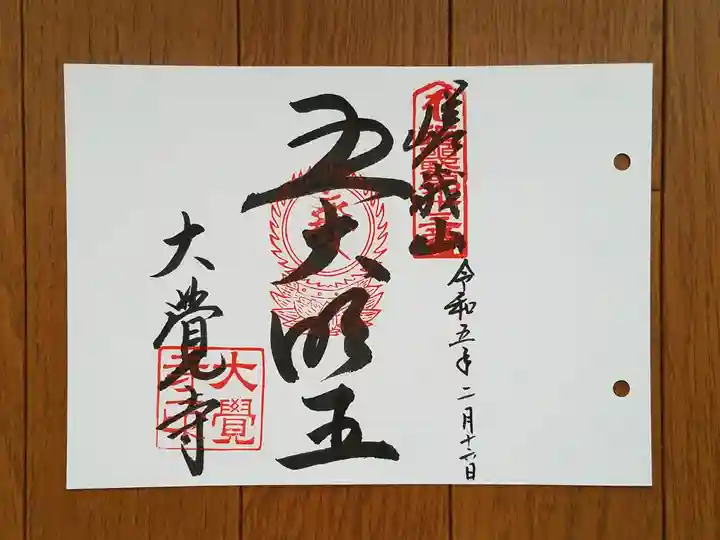 嵯峨山
令和五年二月十六日
五大明王
大覺寺
大覺寺印